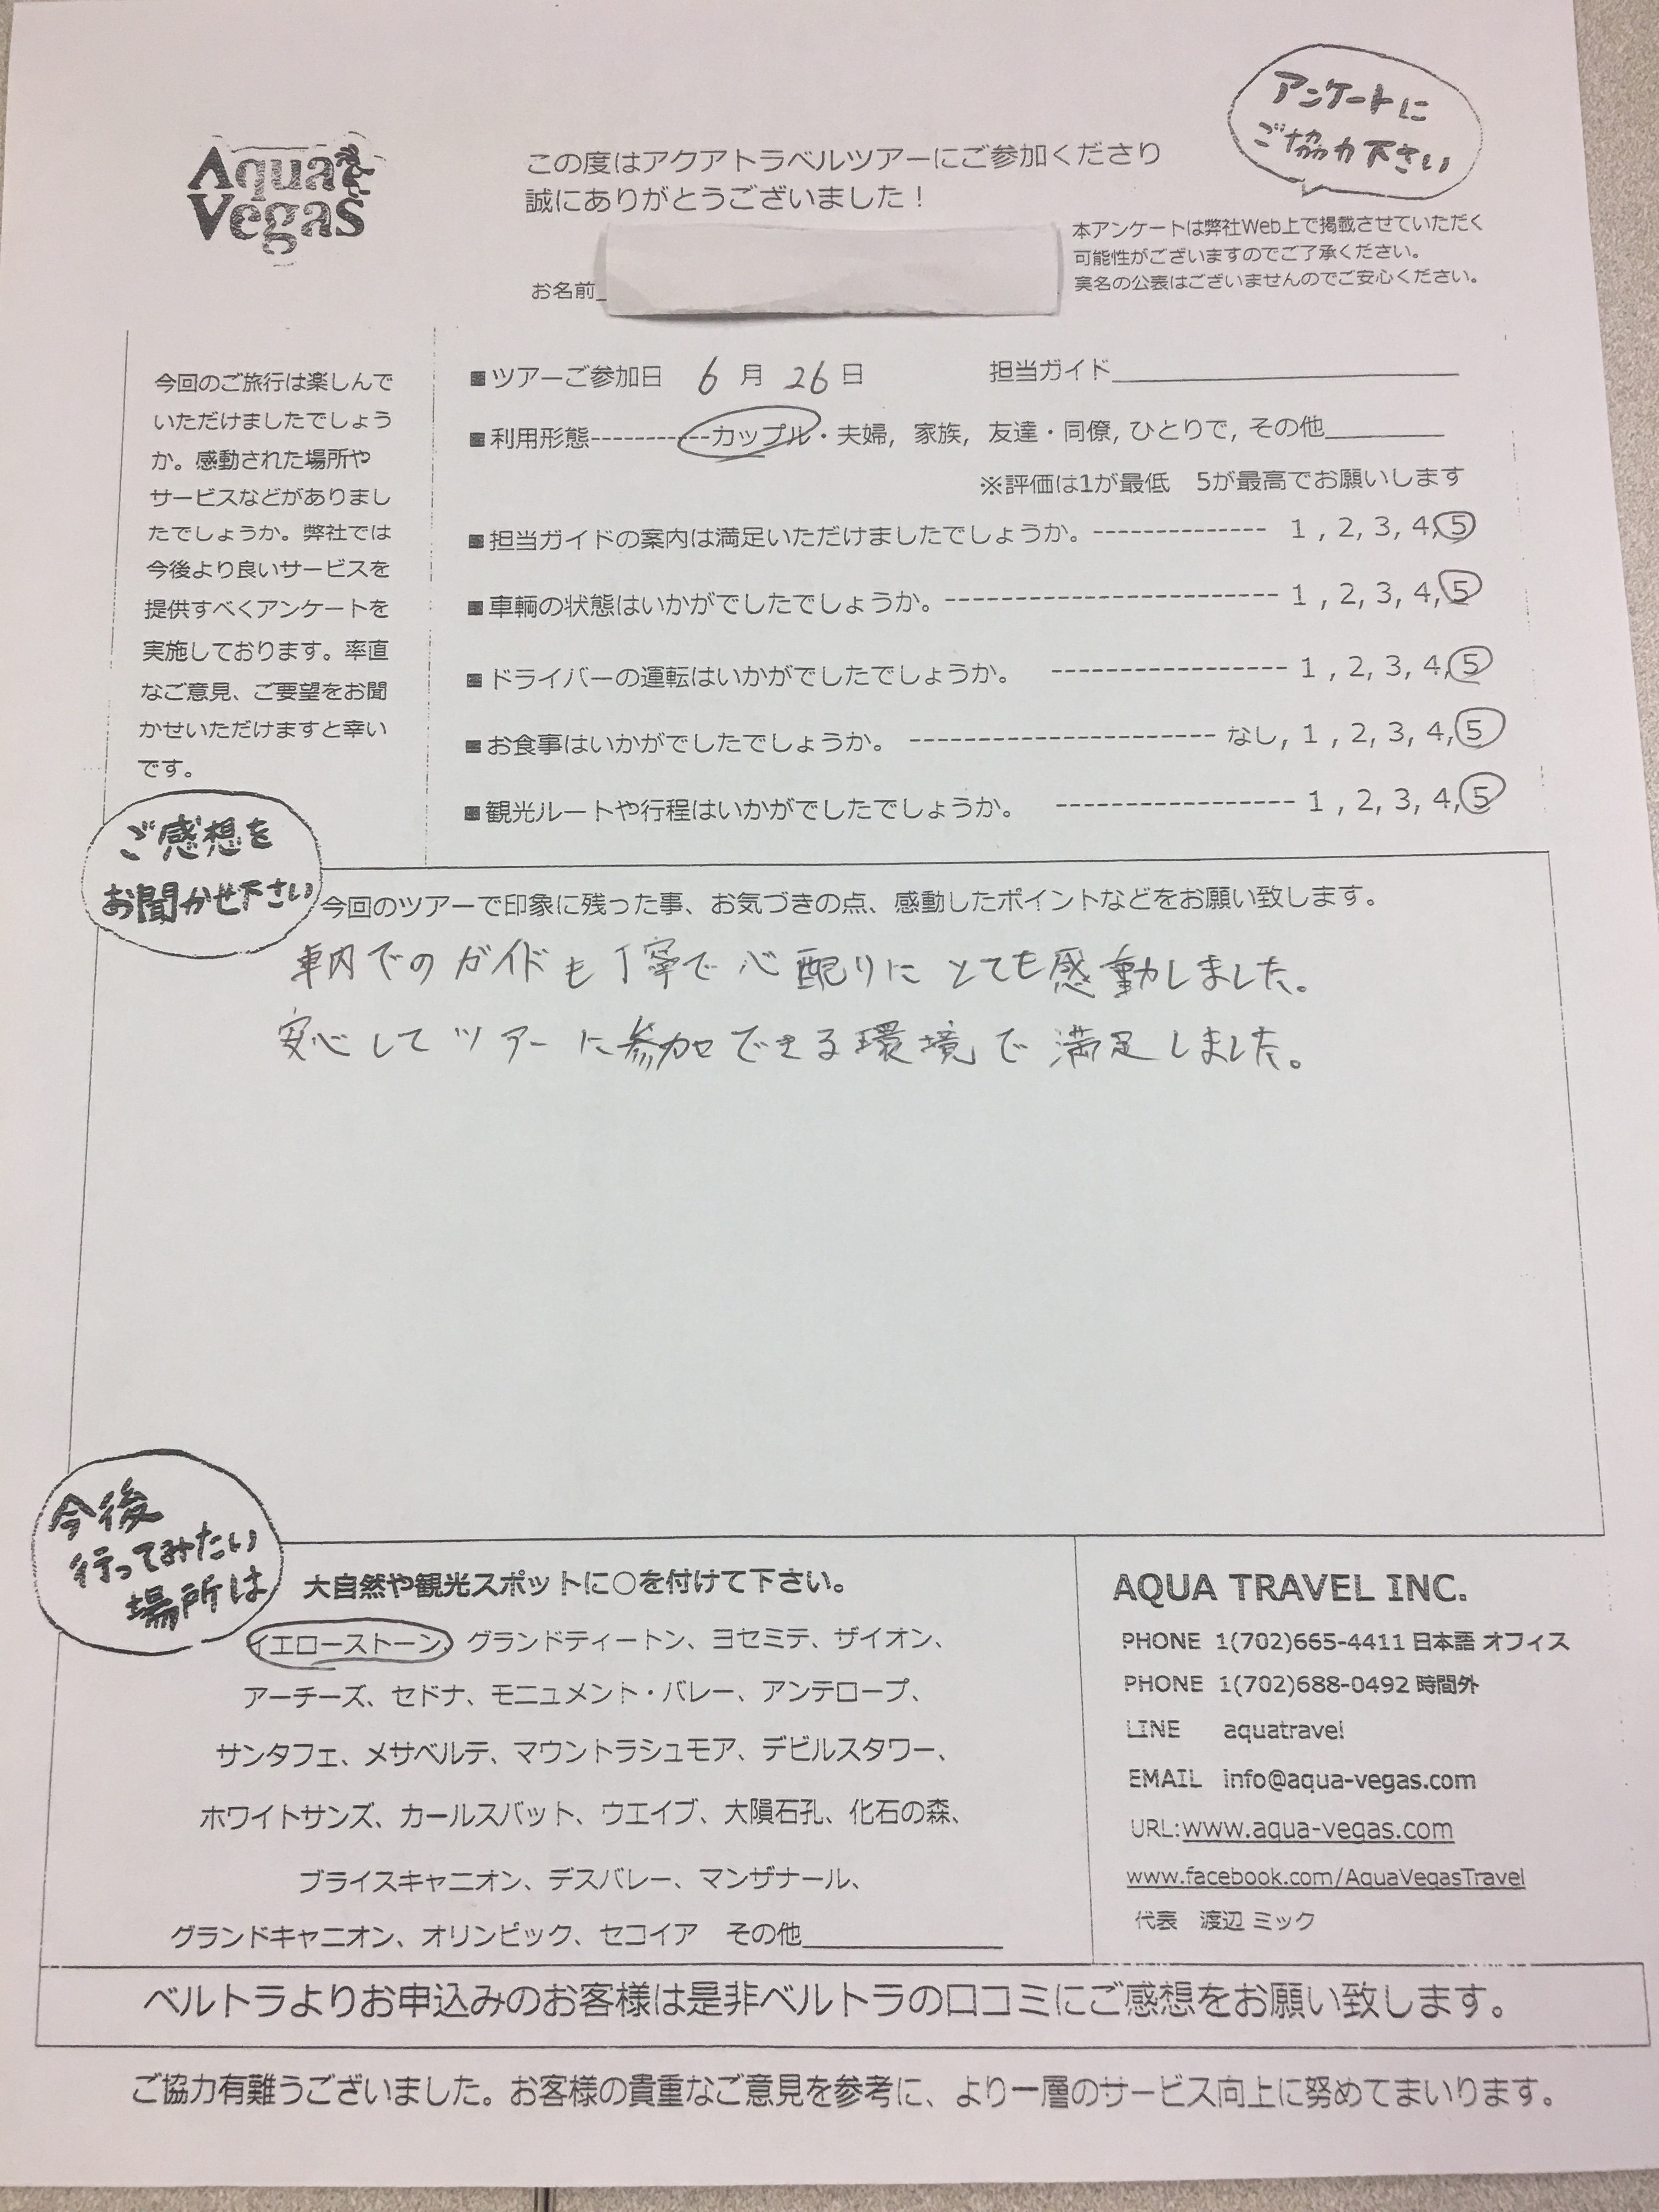 アンケートに
ご協力下さい
Aqua
Vegas
この度はアクアトラベルツアーにご参加くださり
誠にありがとうございました!
本アンケートは弊社Web上で掲載させていただく
可能性がございますのでご了承ください。
実名の公表はございませんのでご安心ください。
お名前
今回のご旅行は楽しんで
いただけましたでしょう
か。感動された場所や
サービスなどがありまし
たでしょうか。弊社では
今後より良いサービスを
提供すべくアンケートを
実施しております。率直
なご意見、ご要望をお聞
かせいただけますと幸い
です。
■ツアーご参加日 6月26日 担当ガイド
■利用形態-----------カップル・夫婦, 家族, 友達・同僚, ひとりで, その他
※評価は1が最低 5が最高でお願いします
■担当ガイドの案内は満足いただけましたでしょうか。-------------- 1 , 2, 3, 4, 5
■車輌の状態はいかがでしたでしょうか。--------------------------- 1 , 2, 3, 4, 5
■ドライバーの運転はいかがでしたでしょうか。 ------------------- 1 , 2, 3, 4, 5
■お食事はいかがでしたでしょうか。 ------------------------- なし, 1 , 2, 3, 4, 5
■観光ルートや行程はいかがでしたでしょうか。 ------------------- 1 , 2, 3, 4, 5
ご感想を
お聞かせ下さい
今回のツアーで印象に残った事、お気づきの点、感動したポイントなどをお願い致します。
車内でのガイドも丁寧で心配りにとても感動しました。
安心してツアーに参加できる環境で満足しました。
今後
行ってみたい
場所は
大自然や観光スポットに○を付けて下さい。
イエローストーン、グランドティートン、ヨセミテ、ザイオン、
アーチーズ、セドナ、モニュメント・バレー、アンテロープ、
サンタフェ、メサベルテ、マウントラシュモア、デビルスタワー、
ホワイトサンズ、カールスバット、ウエイブ、大隕石孔、化石の森、
ブライスキャニオン、デスバレー、マンザナール、
グランドキャニオン、オリンピック、セコイア その他
AQUA TRAVEL INC.
PHONE 1(702)665-4411 日本語 オフィス
PHONE 1(702)688-0492 時間外
LINE aquatravel
EMAIL info@aqua-vegas.com
URL:www.aqua-vegas.com
www.facebook.com/AquaVegasTravel
代表 渡辺 ミック
ベルトラよりお申込みのお客様は是非ベルトラの口コミにご感想をお願い致します。
ご協力有難うございました。お客様の貴重なご意見を参考に、より一層のサービス向上に努めてまいります。